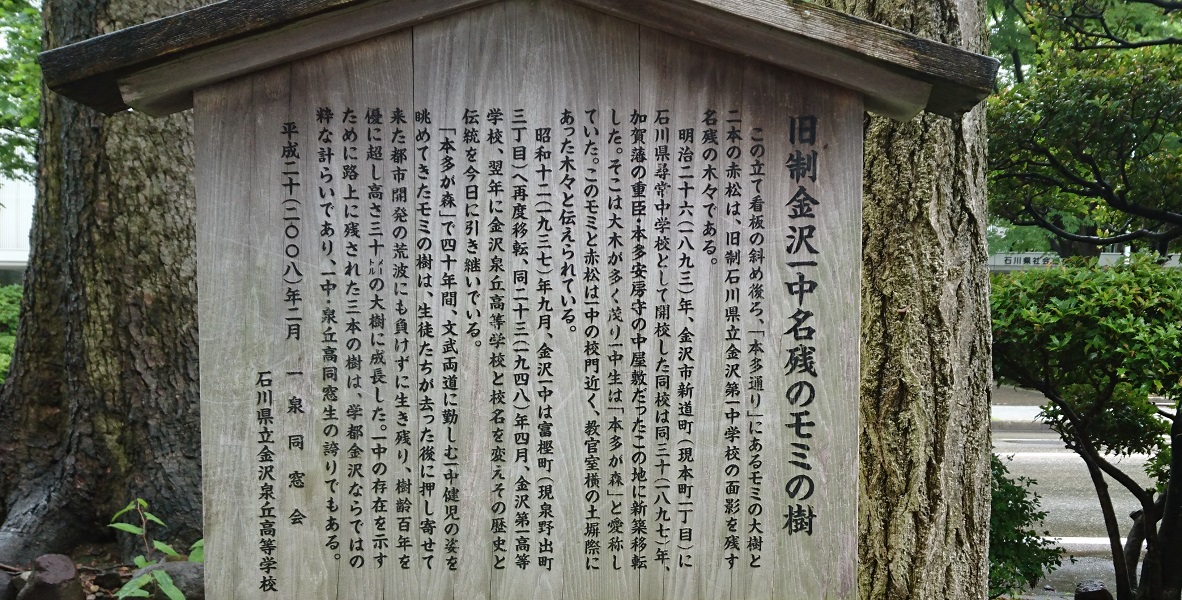 旧制金沢一中名残のモミの樹
この立て看板の斜め後ろ、「本多通り」にあるモミの大樹と
二本の赤松は、旧制石川県立金沢第一中学校の面影を残す
名残の木々である。
明治二十六(一八九三)年、金沢市新道町(現本町一丁目)に
石川県尋常中学校として開校した同校は同三十(一八九七)年、
加賀藩の重臣・本多安房守の中屋敷だったこの地に新築移転
した。そこは大木が多く茂り一中生は「本多が森」と愛称し
ていた。このモミと赤松は一中の校門近く、教官室横の土塀際に
あった木々と伝えられている。
昭和十二(一九三七)年九月、金沢一中は富樫町(現泉野出町
三丁目)へ再度移転、同二十三(一九四八)年四月、金沢第一高等
学校、翌年に金沢泉丘高等学校と校名を変えその歴史と
伝統を今日に引き継いでいる。
「本多が森」で四十年間、文武両道に勤しむ一中健児の姿を
眺めてきたモミの樹は、生徒たちが去った後に押し寄せて
来た都市開発の荒波にも負けずに生き残り、樹齢百年を
優に超し高さ三十メートルの大樹に成長した。一中の存在を示す
ために路上に残された三本の樹は、学都金沢ならではの
粋な計らいであり、一中・泉丘高同窓生の誇りでもある。
平成二十(二〇〇八)年二月 一泉同窓会
石川県立金沢泉丘高等学校
石川県社会